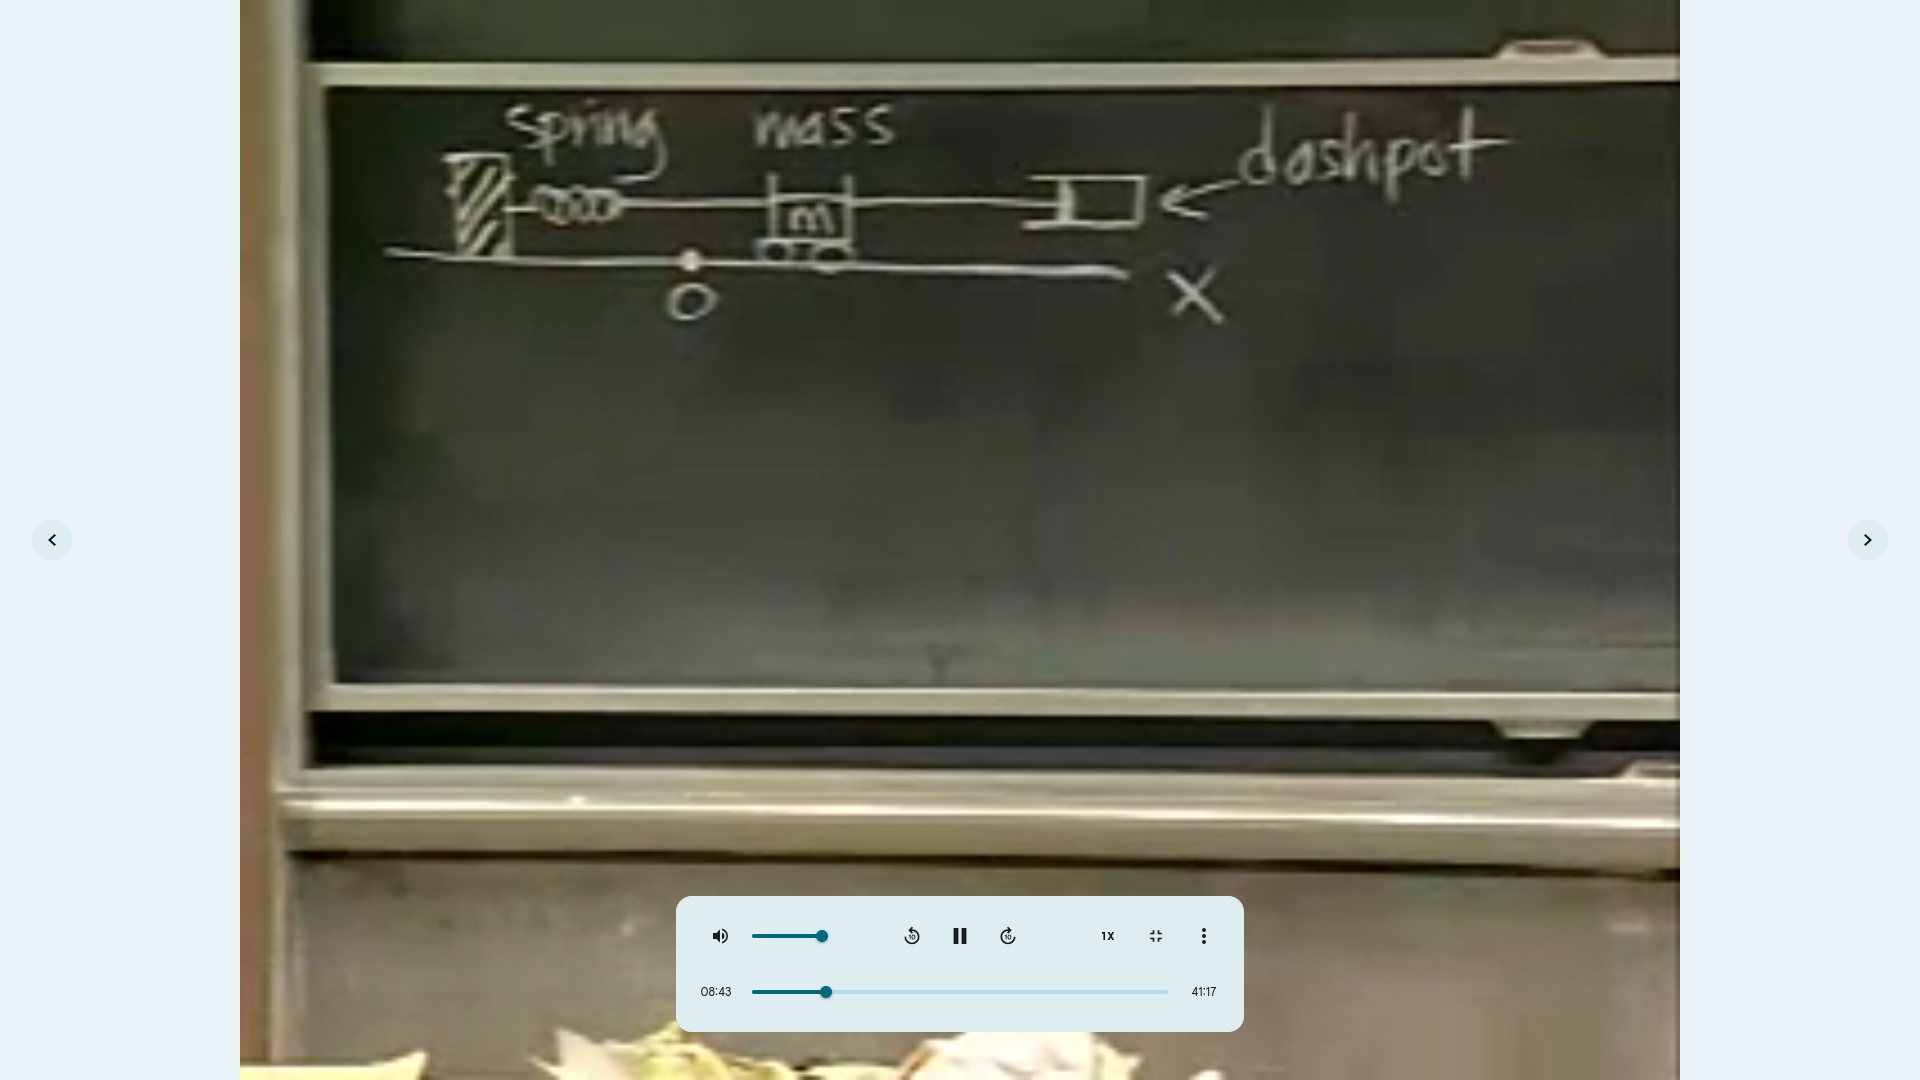 spring mass dashpot
m
O
X
1X
08:43 41:17